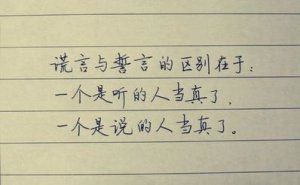 谎言与誓言的区别在于:
一个是听的人当真了,
一个是说的人当真了。